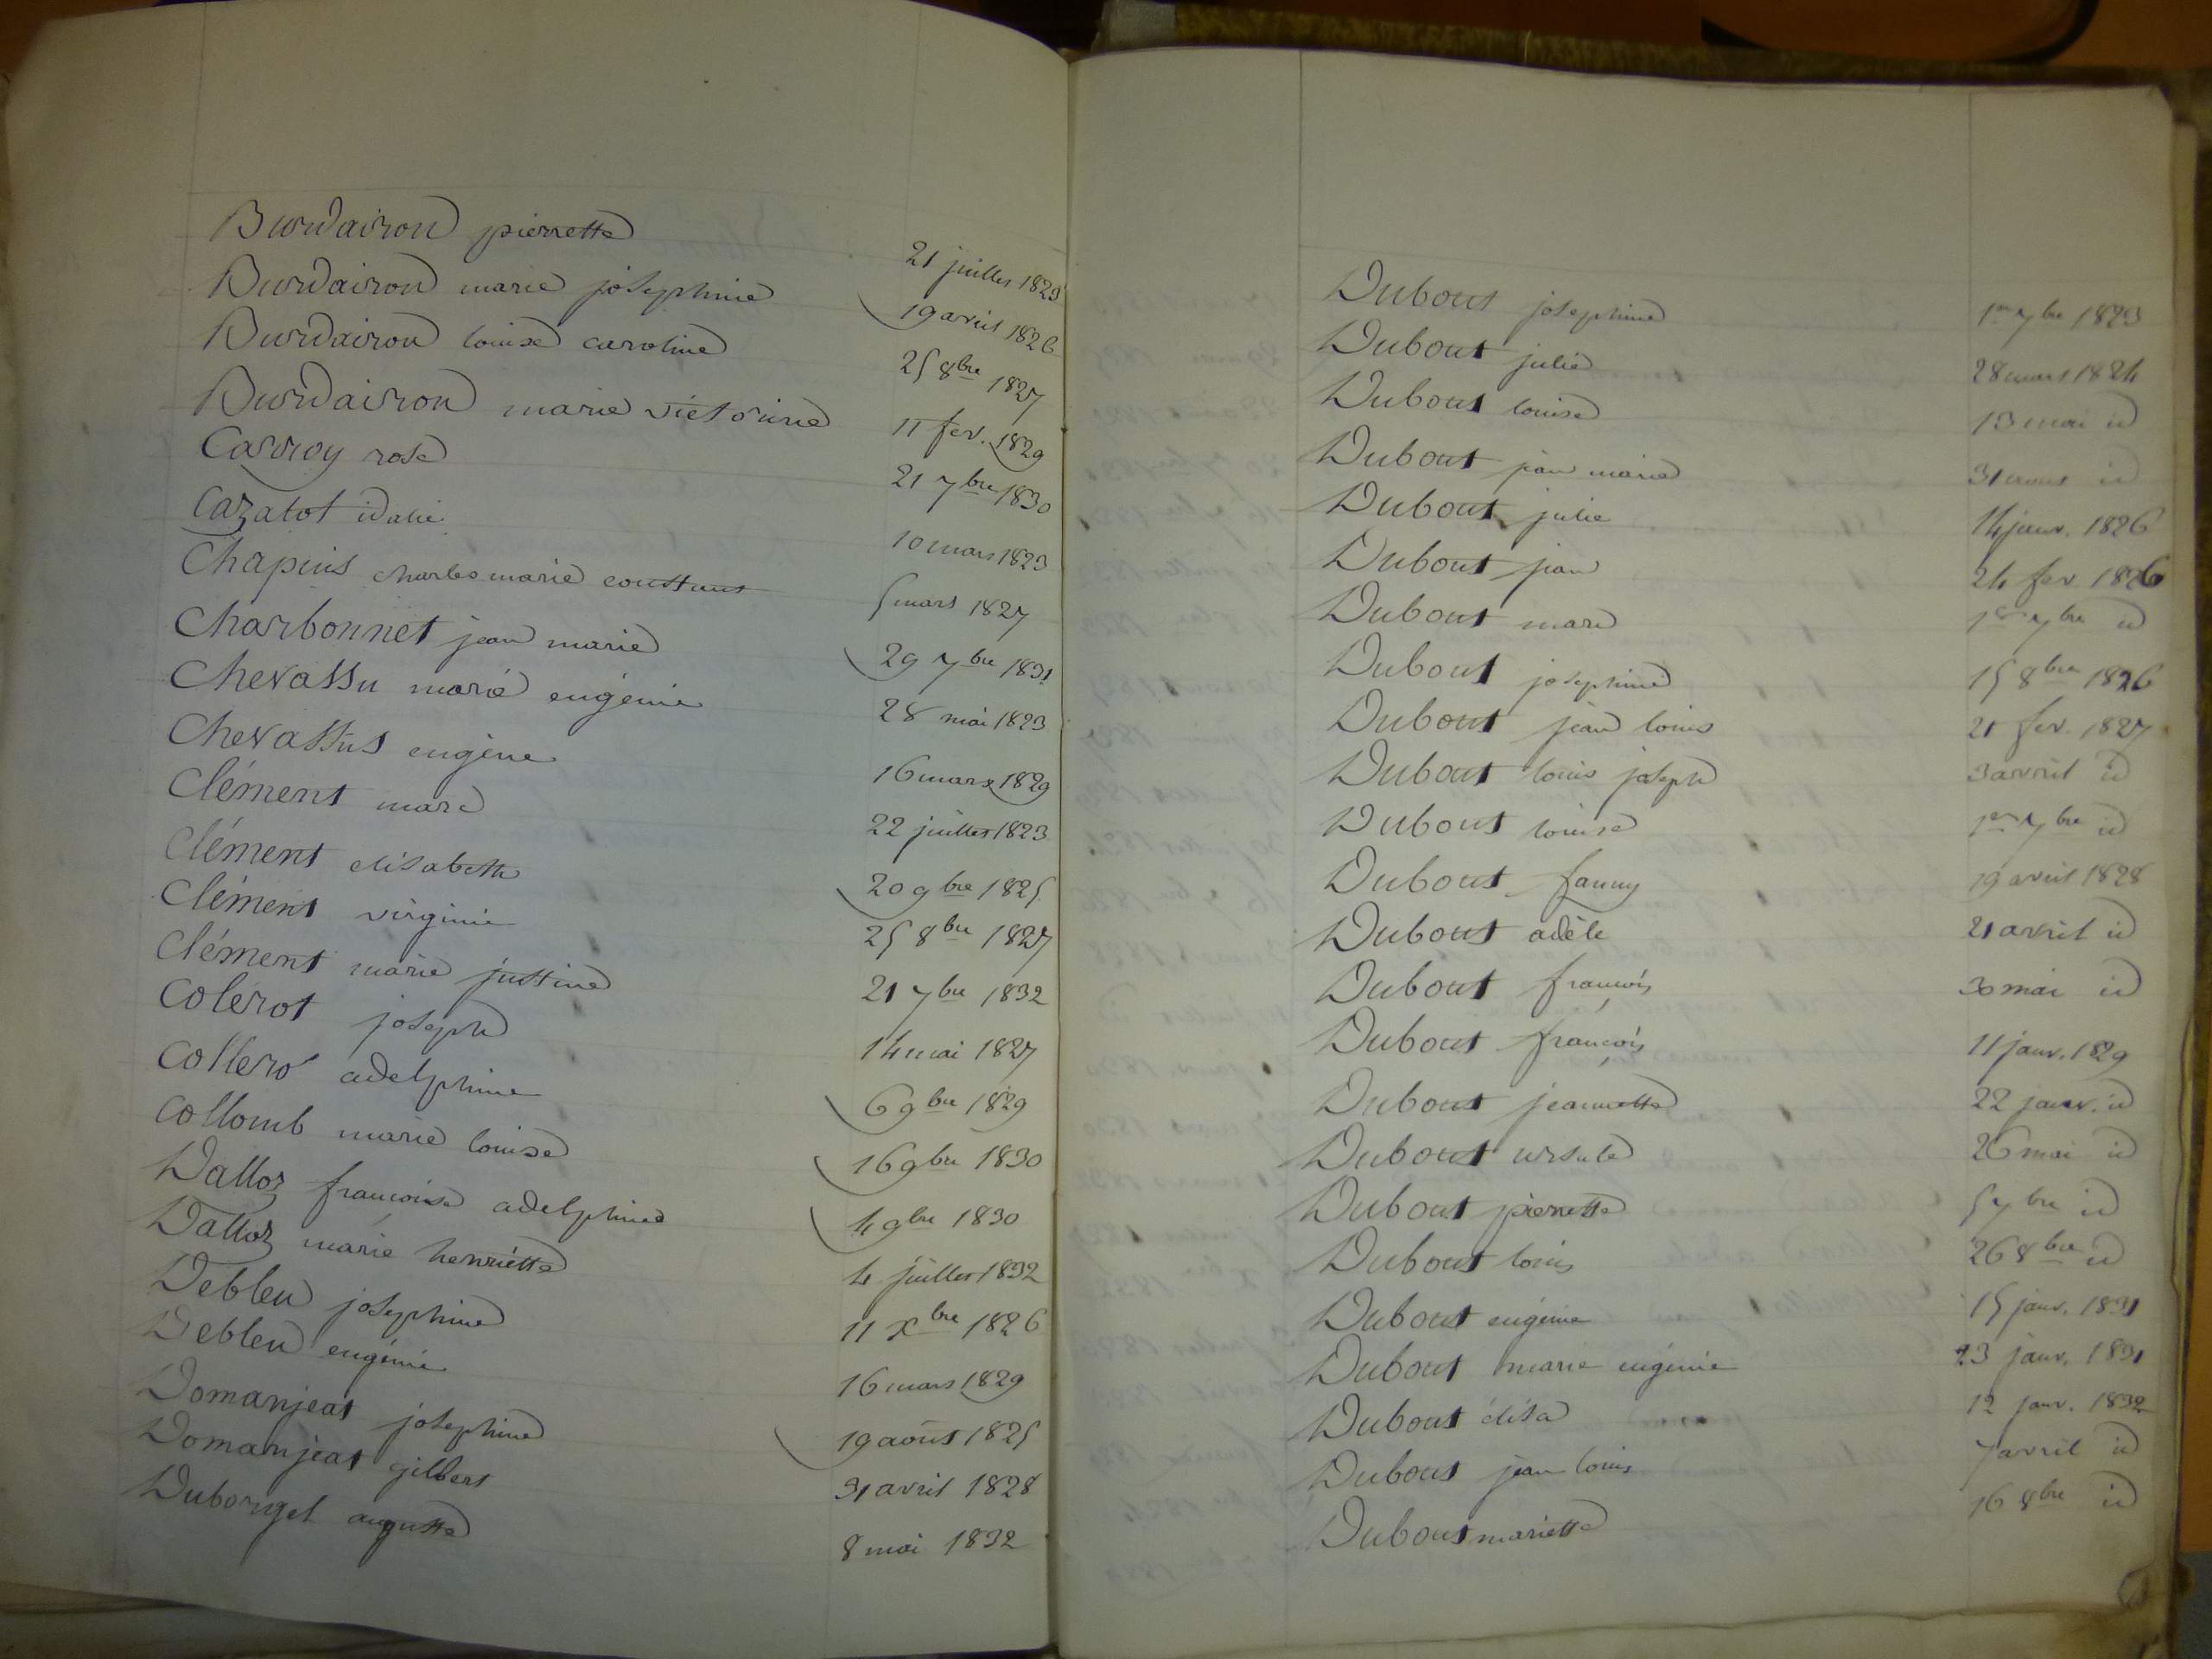 Burdairon pierrette 21 juillet 1823
Burdairon marie josephine 19 avril 1826
Burdairon louise caroline 25 8bre 1827
Burdairon marie victorine 11 fev. 1829
Carroy rose 21 7bre 1830
Cazalot idalie 10 mars 1823
Chapuis charles marie constant 5 mars 1827
Charbonnet jean marie 29 7bre 1831
Chevassu marie eugénie 28 mai 1823
Chevassus eugène 16 mars 1829
Clément marc 22 juillet 1823
Clément elisabeth 20 9bre 1825
Clément virginie 25 8bre 1827
Clément marie justine 21 7bre 1832
Colérot joseph 14 mai 1827
Collero adelphine 6 9bre 1829
Collomb marie louise 16 9bre 1830
Dalloz francoise adelphine 4 9bre 1830
Dalloz marie henriette 4 juillet 1832
Debleu josephine 11 Xbre 1826
Debleu eugénie 16 mars 1829
Domanjeat josephine 19 août 1825
Domanjeat gilbert 31 avril 1828
Duborget augusta 8 mai 1832
Dubout josephine 1er 7bre 1823
Dubout julie 28 mars 1824
Dubout louise 13 mai id
Dubout jean marie 31 aout id
Dubout julie 14 janv. 1826
Dubout jean 24 fev 1826
Dubout marie 1er 7bre id
Dubout josephine 15 8bre 1826
Dubout jean louis 21 fev. 1827
Dubout louis joseph 3 avril id
Dubout louise 1er 7bre id
Dubout fanny 19 avril 1828
Dubout adèle 21 avril id
Dubout francois 30 mai id
Dubout francois 11 janv. 1829
Dubout jeannette 22 janv. id
Dubout ursule 26 mai id
Dubout pierrette 5 7bre id
Dubout louis 26 8bre id
Dubout eugénie 15 janv. 1831
Dubout marie eugénie 23 janv. 1831
Dubout élisa 12 janv. 1832
Dubout jean louis 7 avril id
Dubout mariette 16 8bre id